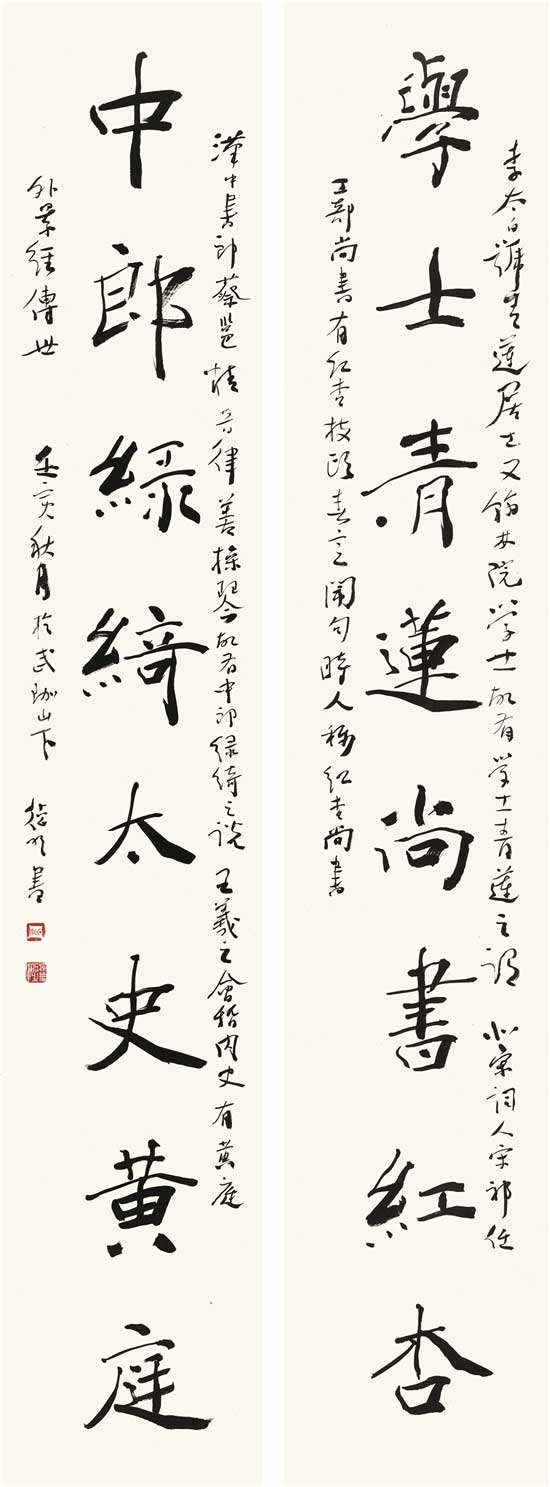 李太白號青蓮居士又翰林院學士故有學士青蓮之謂 北宋詞人宋祁任
學士青蓮尚書紅杏
工部尚書有紅杏枝頭春意鬧句時人稱紅杏尚書
漢中書郎蔡邕精音律善操琴故有中郎綠綺之説 王羲之會稽內史有黃庭
中郎綠綺太史黃庭
外景經傳世 壬寅秋月於武珈山下 書